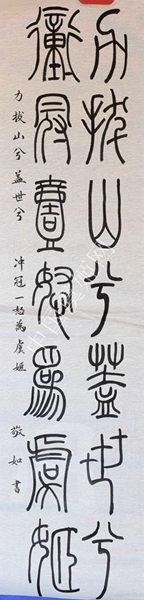 力拔山兮蓋世兮
衝冠壹怒爲虞姬
力拔山兮蓋世兮 冲冠一怒為虞姬 敬如書